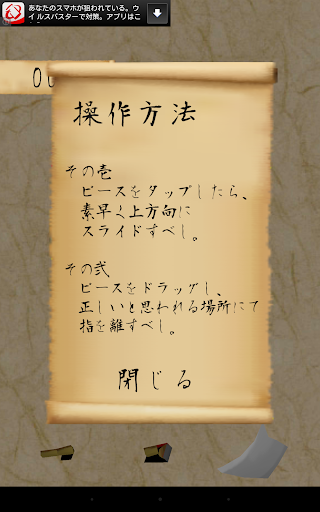 あなたのスマホが狙われている。ウ
イルスバスターで対策。アプリはこ
操作方法
その壱
ピースをタップしたら、
素早く上方向に
スライドすべし。
その弐
ピースをドラッグし、
正しいと思われる場所にて
指を離すべし。
閉じる